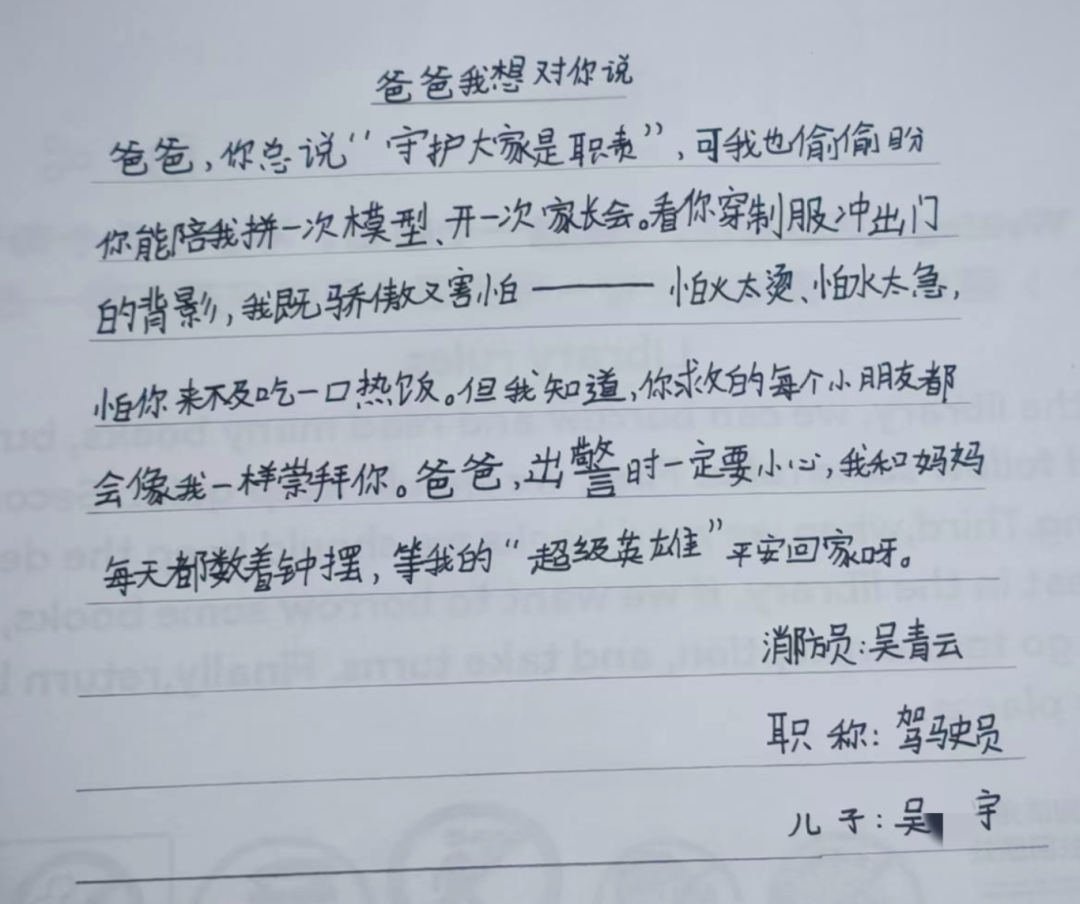 爸爸我想对你说
爸爸，你总说“守护大家是职责”，可我也偷偷盼
你能陪我拼一次模型、开一次家长会。看你穿制服冲出门
的背影，我既骄傲又害怕———怕火太烫、怕水太急，
怕你来不及吃一口热饭。但我知道，你救的每个小朋友都
会像我一样崇拜你。爸爸，出警时一定要小心，我和妈妈
每天都数着钟摆，等我的“超级英雄”平安回家呀。
消防员：吴青云
职称：驾驶员
儿子：吴 宇